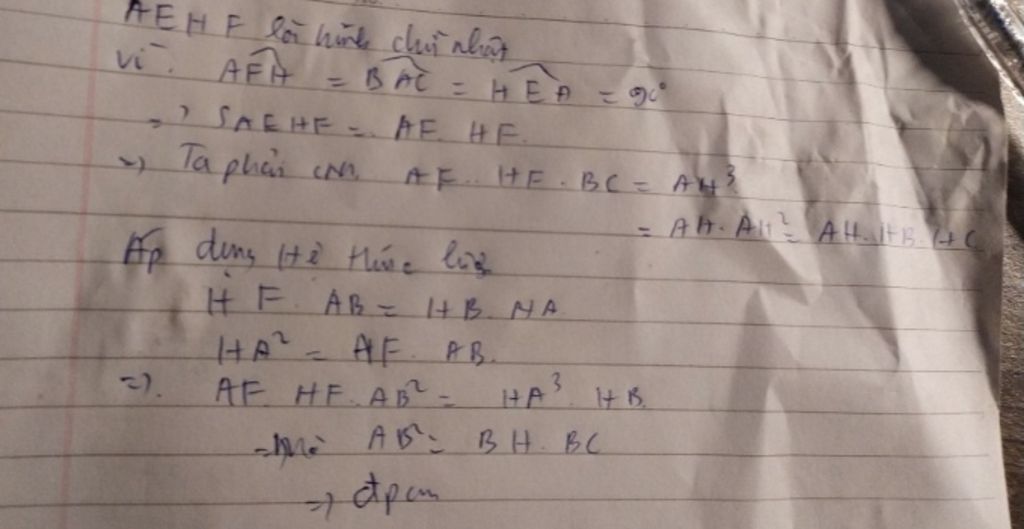 AEHF là hình chữ nhật
vì. AFH = BAC = HEA = 90°
=> SAEHF = AF. HF.
=> Ta phải cm AF. HF. BC = AH³
= AH. AH² = AH. HB. HC
Áp dụng Hệ thức lượng
HF. AB = HB. HA
HA² = AF. AB.
=>. AF HF. AB² = HA³. HB.
Mà AB² = BH. BC
=> đpcm